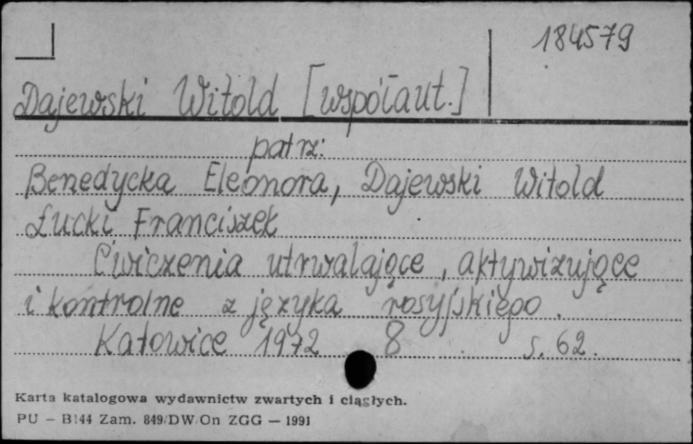 184579
Dajewski Witold [współaut.]
patrz:
Benedycka Eleonora, Dajewski Witold
Łucki Franciszek
Ćwiczenia utrwalające, aktywizujące
i kontrolne z języka rosyjskiego.
Katowice 1972 8 s. 62.
Karta katalogowa wydawnictw zwartych i ciągłych.
PU – B144 Zam. 849/DW/On ZGG — 1991